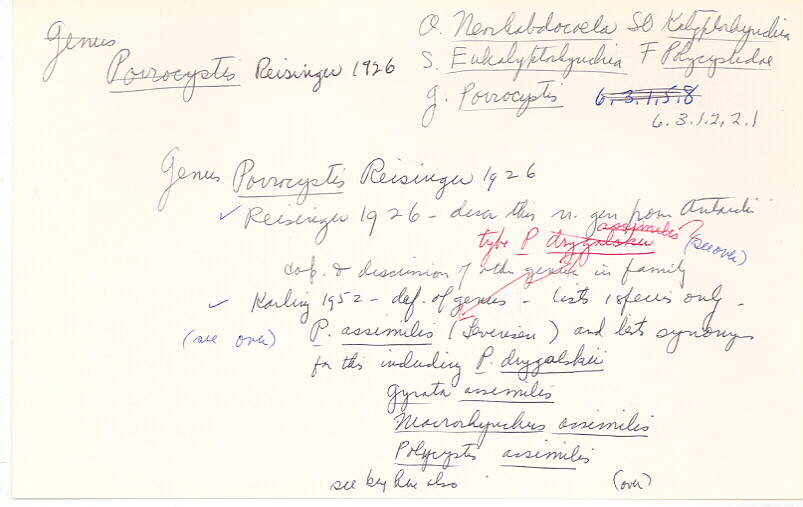 Genus
Porrocystis Reisinger 1926
O. Neorhabdocoela SO Kalyptorhynchia
S. Eukalyptorhynchia F Polycystidae
g. Porrocystis 6.3.1.5.8
6.3.1.2,2.1
Genus Porrocystis Reisinger 1926
✓ Reisinger 1926 - descr this n. gen from Antarctic
assimilis?
type P drygalskii (see over)
& discussion of other genera in family
✓ Karling 1952 - def. of genus - lists 1 species only -
(see over) P. assimilis (Levinsen) and lists synonyms
for this including P. drygalskii
gyrata assimilis
Macrorhynchus assimilis
Polycystis assimilis
see key here also (over)